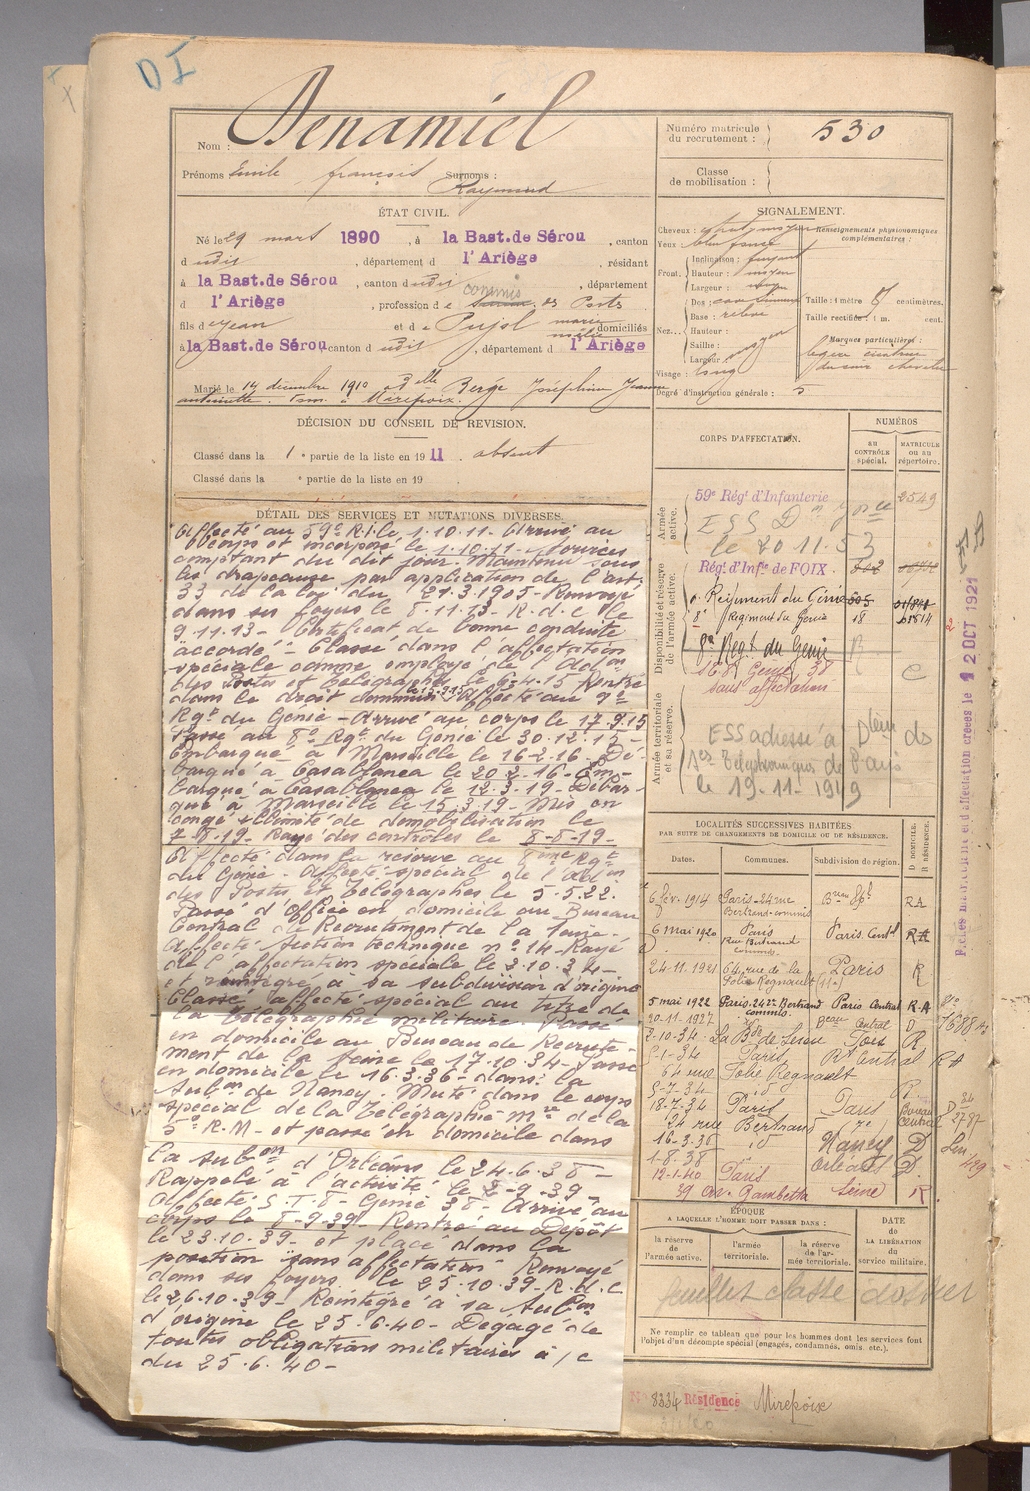 D I
Nom : Denamiel
Prénoms Emile françois Surnoms : Raymond
Numéro matricule du recrutement : 530
Classe de mobilisation :
ÉTAT CIVIL.
Né le 29 mars 1890, à la Bast. de Sérou, canton
d udit, département d l'Ariège, résidant
à la Bast. de Sérou, canton d udit, département
d l'Ariège, profession d e commis des Postes
fils d e Jean et d e Pujol marie domiciliés
à la Bast. de Sérou canton d udit, département d l'Ariège
Marié le 14 décembre 1910 à Dlle Berge Joséphine Jeanne
antoinette. Dom. à Mirepoix.
DÉCISION DU CONSEIL DE REVISION.
Classé dans la 1e partie de la liste en 1911. absent
Classé dans la e partie de la liste en 19
SIGNALEMENT.
Cheveux : chat. moyen
Yeux bleu foncé
Front. Inclinaison : fuyant
Hauteur : moyen
Largeur : moyen
Nez. Dos :
Base : relevé
Hauteur :
Saillie :
Largeur : moyen
Visage : long
Degré d'instruction générale : 5
Renseignements physionomiques complémentaires :
Taille : 1 mètre centimètres.
Taille rectifiée : 1 m. cent.
Marques particulières :
légère cicatrice
cuir chevelu
DÉTAIL DES SERVICES ET MUTATIONS DIVERSES.
Affecté au 59e R.I. le 1.10.11 - Arrivé au
corps et incorporé le 1.10.11 - Sources
comptant du dit jour. Maintenu sous
les drapeaux par application de l'art.
33 de la loi du 21.3.1905 - Renvoyé
dans ses foyers le 8.11.13 - R.d.c le
9.11.13 - Certificat de bonne conduite
"accordé" - Classé dans l'affectation
spéciale comme employé de l'Adon
des Postes et Télégraphes le 6.4.15 Rentré
dans le droit commun le 15.9.15 Affecté au 9e
Rgt du Génie - Arrivé au corps le 17.9.15
Passé au 8e Rgt du Génie le 30.12.15 -
Embarqué à Marseille le 16-2-16. Dé-
barqué à Casablanca le 20.2.16 - Em-
barqué à Casablanca le 12.3.19 - Débar-
qué à Marseille le 15.3.19 - Mis en
congé illimité de démobilisation le
Rayé des contrôles le 8-5-19 -
Affecté dans la réserve au 8ème Rgt
du Génie - Affecté spécial de l'Adon
des Postes et Télégraphes le 5.5.22.
Passé d'office en domicile au Bureau
Central de Recrutement de la Seine -
Affecté Section technique n° 14 - Rayé
de l'affectation spéciale le 3.10.34 -
et réintégré à sa subdivision d'origine
Classé affecté spécial au titre de
la télégraphie militaire. Passé
en domicile au Bureau de Recrute-
ment de la Seine le 17.10.34 - Passé
en domicile le 16.3.36 - dans la
Subon de Nancy. Muté dans le corps
spécial de la Télégraphie Mre de la
5e R.M - et passé en domicile dans
la Subon d'Orléans le 24.6.38 -
Rappelé à l'activité le 2-9-39 -
Affecté S.T.8 - Génie 38 - Arrivé au
corps le 8-9-39 - Rentré au Dépôt
le 23.10.39 - et placé dans la
position "sans affectation" Renvoyé
dans ses foyers le 25.10.39 - R.d.c
le 26.10.39 - Réintégré à sa Subon
d'origine le 25.6.40 - Dégagé de
toutes obligations militaires à /c
du 25.6.40 -
CORPS D'AFFECTATION.
NUMÉROS
AU CONTRÔLE spécial.
MATRICULE OU AU répertoire.
Armée active.
59e Régt d'Infanterie 2549
ESS
le 20 11.53
Disponibilité et réserve de l'armée active.
Régt d'Infie de FOIX
Régiment du Génie
8e Régiment du Génie 18 61814
8e Regt du Génie R
Génie 38 C
sans affectation
Armée territoriale et sa réserve.
ESS adressé à
le 19.11.1949
Fiches matricule et d'affectation créées le 12 OCT 1921
LOCALITÉS SUCCESSIVES HABITÉES
PAR SUITE DE CHANGEMENTS DE DOMICILE OU DE RÉSIDENCE.
Dates. Communes. Subdivision de région. D DOMICILE. R RÉSIDENCE.
6 fév. 1914 Paris - 24 rue Bertrand - commis RA
6 mai 1920 Paris Rue Bertrand commis Paris. Centl RA
24-11-1921 64, rue de la Folie Regnault (11e) Paris R
5 mai 1922 Paris. 24 r. Bertrand commis Paris Central R.A
20-11-1927 Central D
2-10-34 La Bde de Sérou Foix R
Paris Rt Central RA
64 rue Folie Regnault
5-7-34 id R
18-7-34 Paris Paris Bureau Central
24 rue Bertrand
16-3-36 id Nancy D
1-8-38 Orléans D
12-1-40 Paris Seine R
39 av. Gambetta
ÉPOQUE
A LAQUELLE L'HOMME DOIT PASSER DANS :
la réserve de l'armée active.
l'armée territoriale.
la réserve de l'armée territoriale.
DATE DE LA LIBÉRATION du service militaire.
feuillet classé dossier
Ne remplir ce tableau que pour les hommes dont les services font
l'objet d'un décompte spécial (engagés, condamnés, omis, etc.).
N° 8334 Résidence Mirepoix